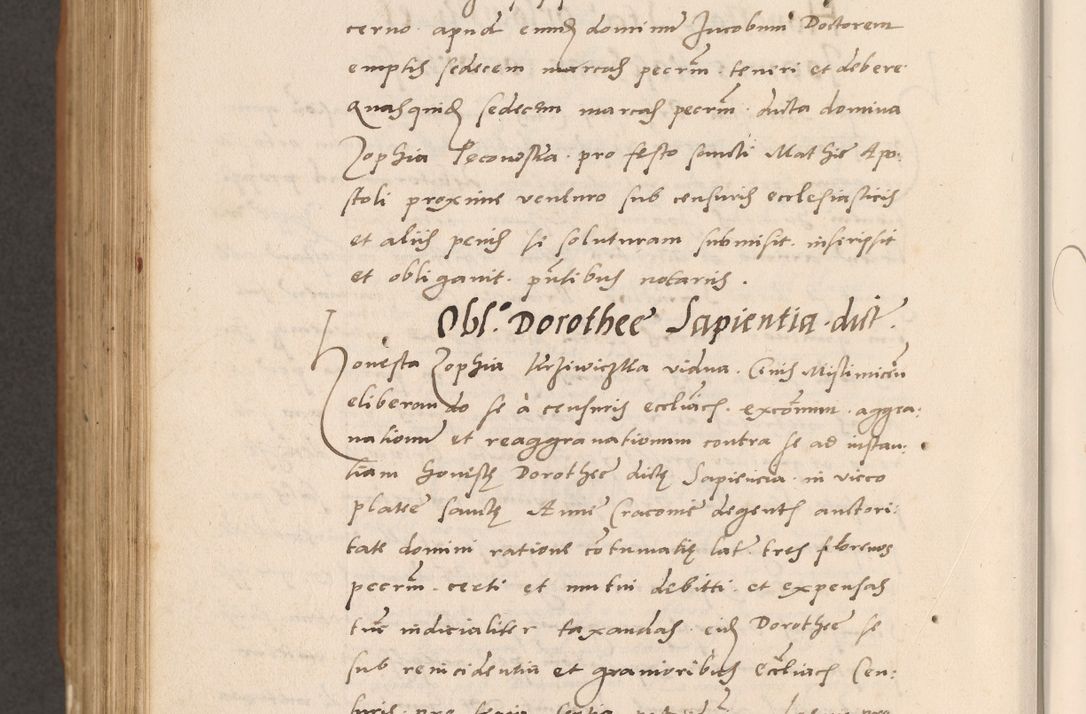 cerno apud eund dominum Jacobum Doctorem
emptis sedecem marcas pecrm teneri et debere
Quasquid sedecem marcas pecrm dicta domina
Zophia pro festo sancti Mathie Apo:
stoli proxime venturo sub censuris ecclesiasticis
et aliis penis se soluturam submisit inscripsit
et obligavit pntibus notariis.
Obl. Dorothee Sapientia dict.
Honesta Zophia vidua
eliberando se a censuris eccliacs excomun aggra:
vationum et reaggravationum contra se ad instan:
tiam honestę Dorothee dictę Sapiencia in vicco
platee sanctę Anne Cracovie degents auctori:
tate domini ratione cotumatię lat tres florenos
pecrm certi et mutui debitti et expensas
tunc indicialiter taxandas eid Dorothee se
sub reincidentia et gravioribus eccliacs Cen: